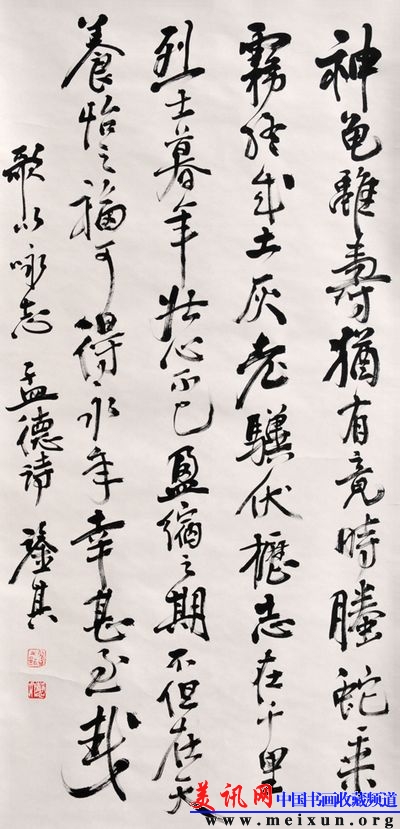 神龜雖壽猶有竟時螣蛇乘
霧終成土灰老驥伏櫪志在千里
烈士暮年壯心不已盈縮之期不但在天
養怡之福可得永年幸甚至哉
歌以咏志 孟德詩
美讯网 中国书画收藏频道
www.meixun.org